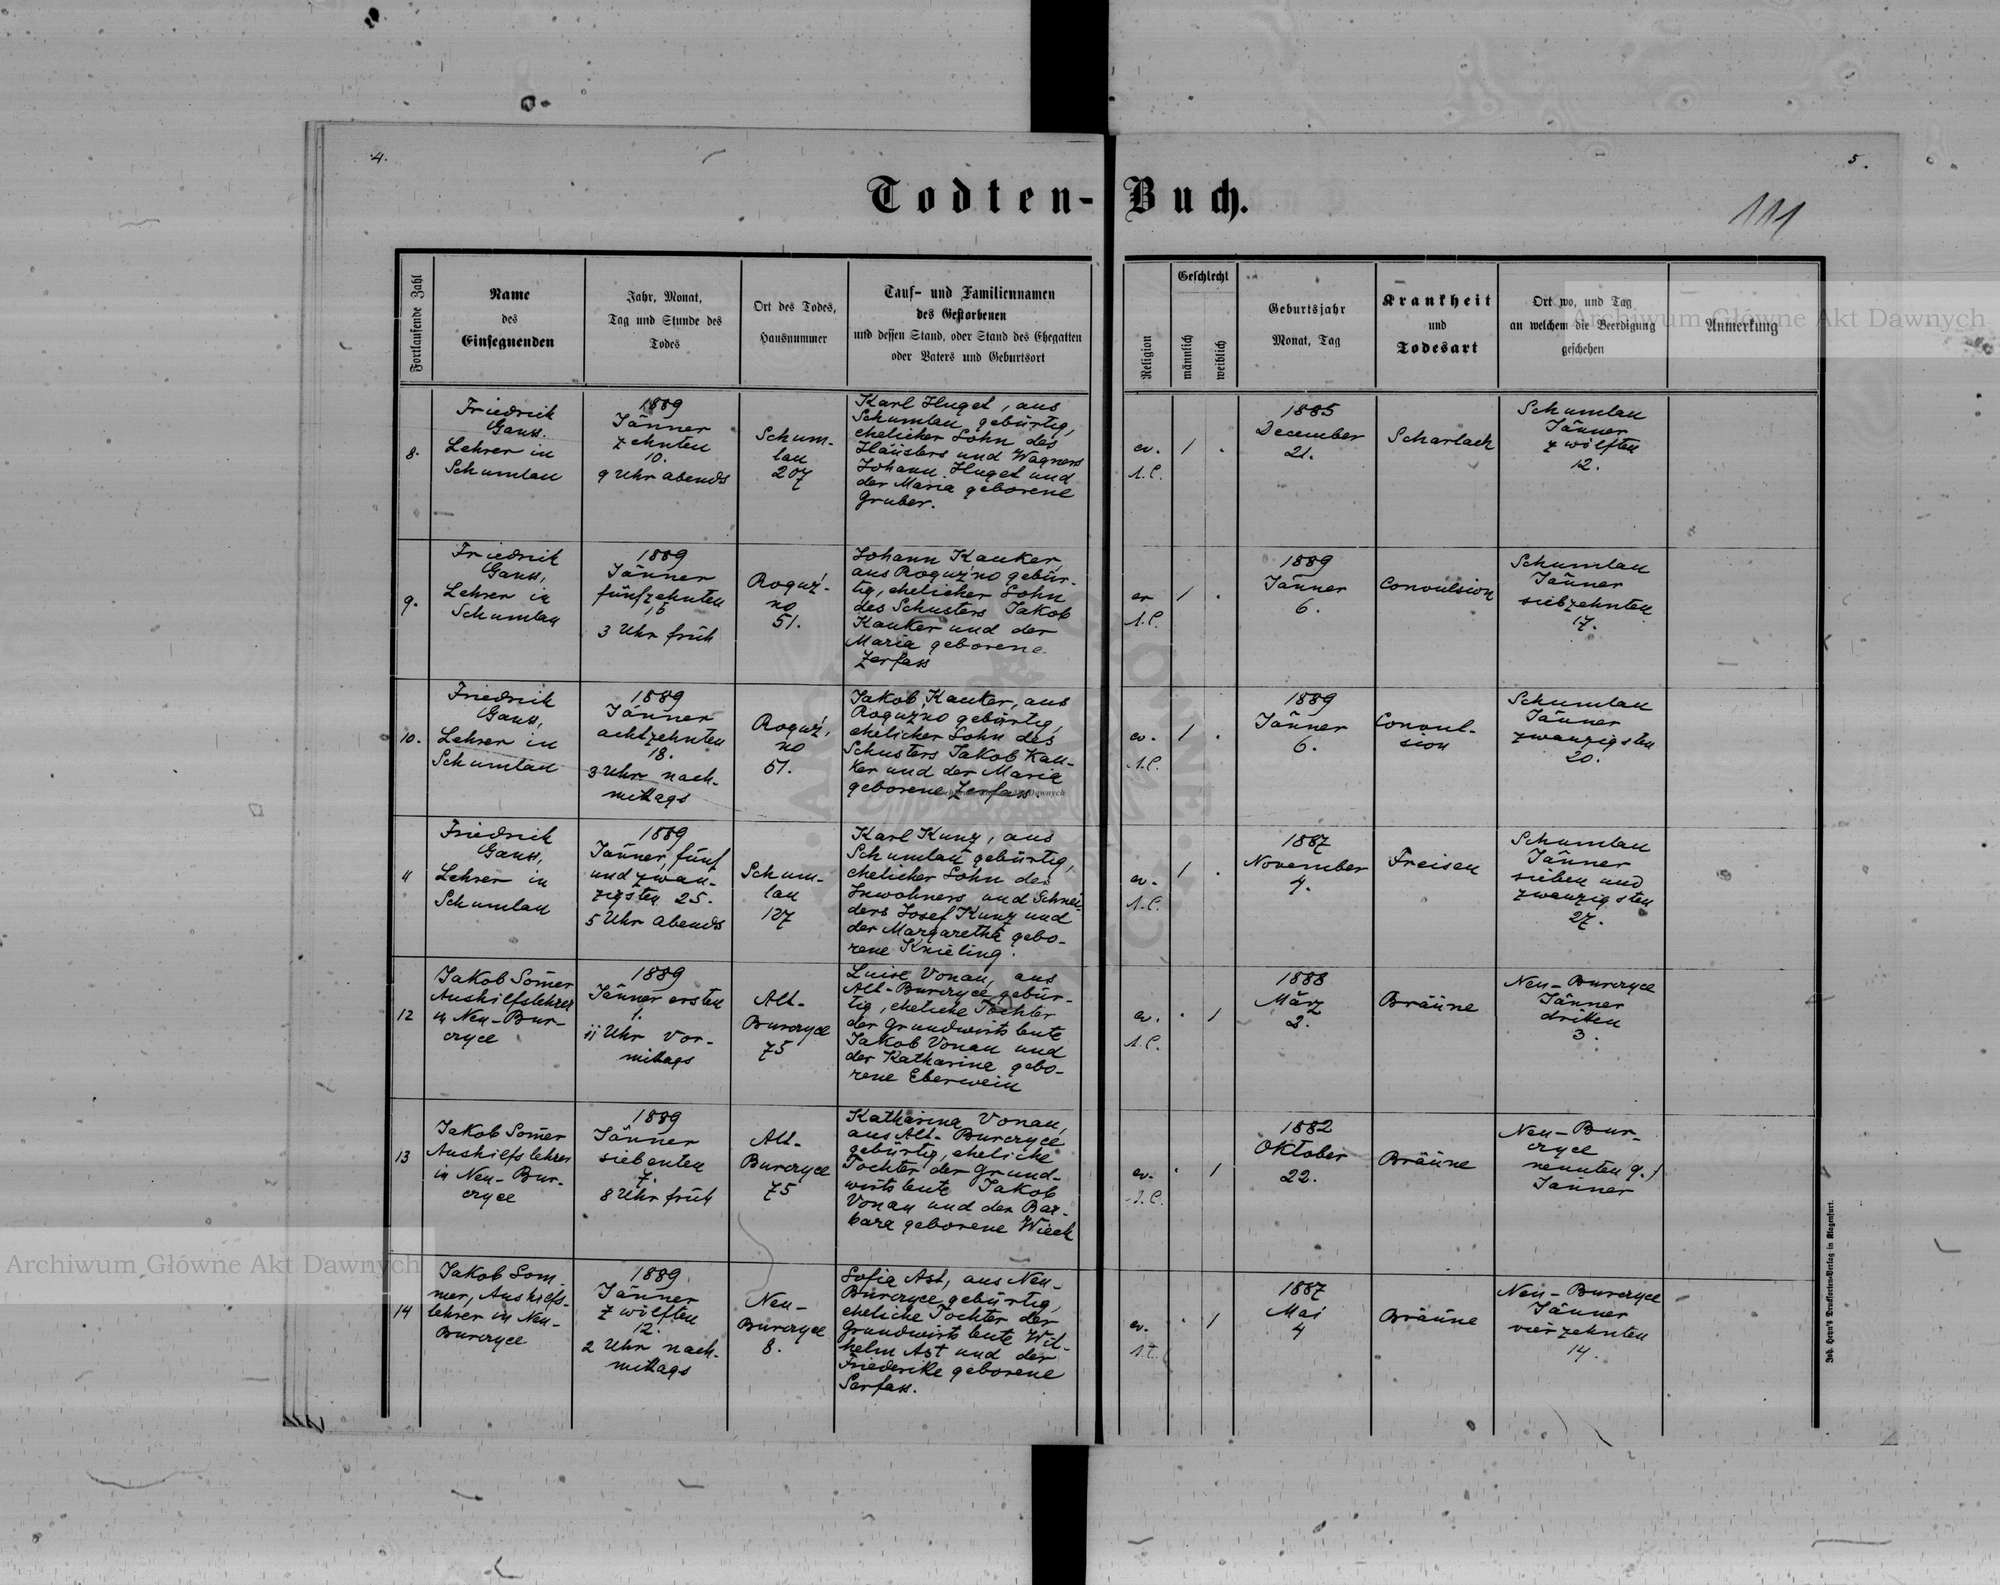 4.
5.
Todten-Buch.
111
Fortlaufende Zahl
Name
des
Einsegnenden
Jahr, Monat,
Tag und Stunde des
Todes
Ort des Todes,
Hausnummer
Tauf- und Familiennamen
des Gestorbenen
und dessen Stand, oder Stand des Ehegatten
oder Vaters und Geburtsort
Religion
Geschlecht
männlich
weiblich
Geburtsjahr
Monat, Tag
Krankheit
und
Todesart
Ort wo, und Tag
an welchem die Beerdigung
geschehen
Anmerkung
8.
Friedrich
Gauss.
Lehrer in
Schumlau
1889
Jänner
zehnten
10.
9 Uhr abends
Schum-
lau
207
Karl Hugel, aus
Schumlau gebürtig,
ehelicher Sohn des
Häuslers und Wagners
Johann Hugel und
der Maria geborene
Gruber.
ev.
A.C.
1
.
1885
December
21.
Scharlach
Schumlau
Jänner
zwölften
12.
9.
Friedrich
Gauss,
Lehrer in
Schumlau
1889
Jänner
fünfzehnten
15
3 Uhr früh
Roguź-
no
51.
Johann Kauker,
aus Roguźno gebür-
tig, ehelicher Sohn
des Schusters Jakob
Kauker und der
Maria geborene
Zerfass
ev
A.C.
1
.
1889
Jänner
6.
Convulsion
Schumlau
Jänner
siebzehnten
17.
10.
Friedrich
Gauss,
Lehrer in
Schumlau
1889
Jänner
achtzehnten
18.
3 Uhr nach-
mittags
Roguź,
no
51.
Jakob Kauker, aus
Roguzno gebürtig,
ehelicher Sohn des
Schusters Jakob Kau-
ker und der Maria
geborene Zerfass.
ev.
A.C.
1
.
1889
Jänner
6.
Convul-
sion
Schumlau
Jänner
zwanzigsten
20.
11
Friedrich
Gauss,
Lehrer in
Schumlau
1889
Jänner, fünf
und zwan-
zigsten 25.
5 Uhr abends
Schum-
lau
127
Karl Kunz, aus
Schumlau gebürtig,
ehelicher Sohn des
Inwohners und Schnei-
ders Josef Kunz und
der Margaretha gebo-
rene Knieling.
ev.
A.C.
1
.
1887
November
4.
Freisen
Schumlau
Jänner
sieben und
zwanzigsten
27.
12
Jakob Som̄er
Aushilfslehrer
in Neu-Bur-
czyce
1889
Jänner ersten
1.
11 Uhr Vor-
mittags
Alt-
Burczyce
75
Luise Vonau, aus
Alt-Burczyce gebür-
tig, eheliche Tochter
der Grundwirtsleute
Jakob Vonau und
der Katharina gebo-
rene Eberwein
ev.
A.C.
.
1
1888
März
2.
Bräüne
Neu-Burczyce
Jänner
dritten
3.
13
Jakob Som̄er
Aushilfslehrer
in Neu-Bur-
czyce
1889
Jänner
siebenten
7.
8 Uhr früh
Alt-
Burczyce
75
Katharina Vonau,
aus Alt-Burczyce
gebürtig, eheliche
Tochter der Grund-
wirtsleute Jakob
Vonau und der Bar-
bara geborene Wieck
ev.
A.C.
.
1
1882
Oktober
22.
Bräüne
Neu-Bur-
czyce
neunten 9.)
Jänner
14
Jakob Som-
mer, Aushilfs-
lehrer in Neu-
Burczyce
1889
Jänner
zwölften
12.
2 Uhr nach-
mittags
Neu-
Burczyce
8.
Sofia Ast, aus Neu-
Burczyce gebürtig,
eheliche Tochter der
Grundwirtsleute Wil-
helm Ast und der
Friederike geborene
Serfass.
ev.
A.C.
.
1
1887
Mai
4
Bräüne
Neu-Burczyce
Jänner
vierzehnten
14.
Joh. Heyn's Drucksorten-Verlag in Klagenfurt.
Archiwum Główne Akt Dawnych
Archiwum Główne Akt Dawnych